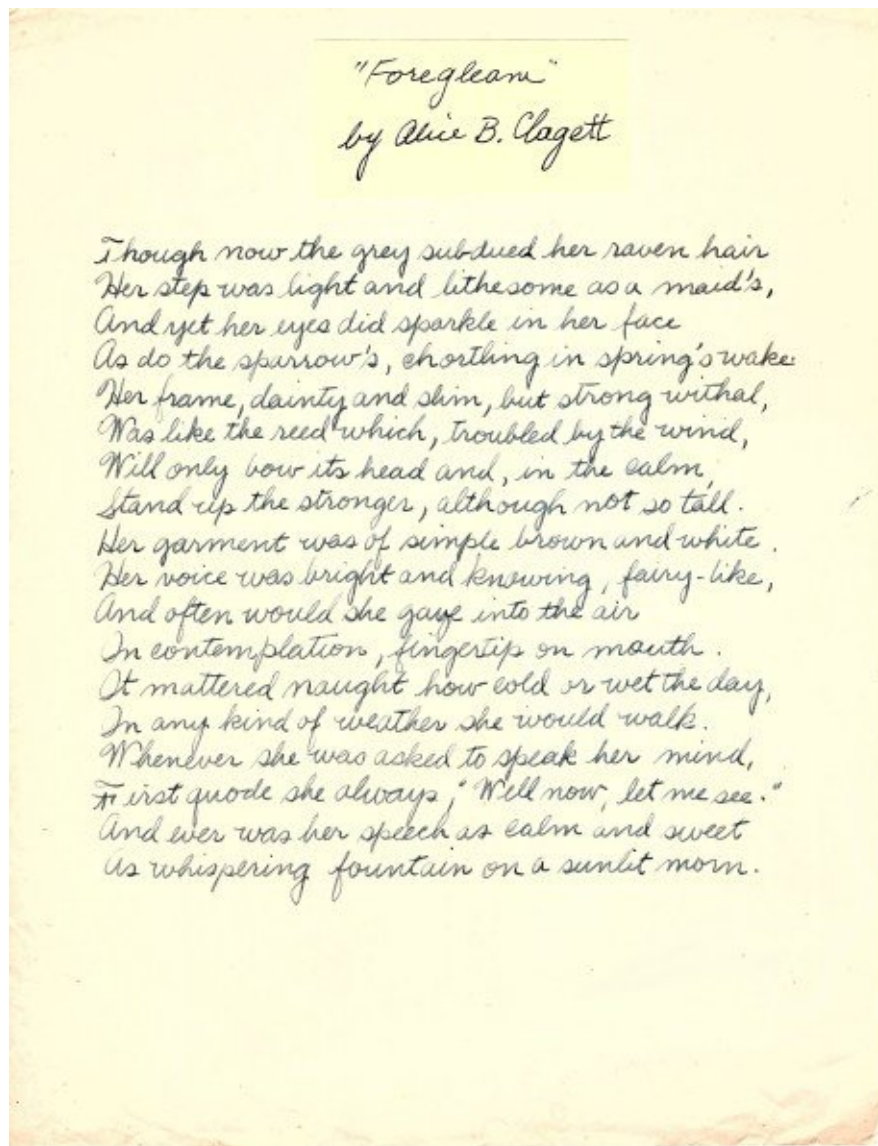 "Foregleam"
by Alice B. Clagett
Though now the grey subdued her raven hair
Her step was light and lithesome as a maid's,
And yet her eyes did sparkle in her face
As do the sparrow's, chortling in spring's wake.
Her frame, dainty and slim, but strong withal,
Was like the reed which, troubled by the wind,
Will only bow its head and, in the calm,
Stand up the stronger, although not so tall.
Her garment was of simple brown and white.
Her voice was bright and knowing, fairy-like,
And often would she gaze into the air
In contemplation, fingertip on mouth.
It mattered naught how cold or wet the day,
In any kind of weather she would walk.
Whenever she was asked to speak her mind,
First quode she always, "Well now, let me see."
And ever was her speech as calm and sweet
As whispering fountain on a sunlit morn.